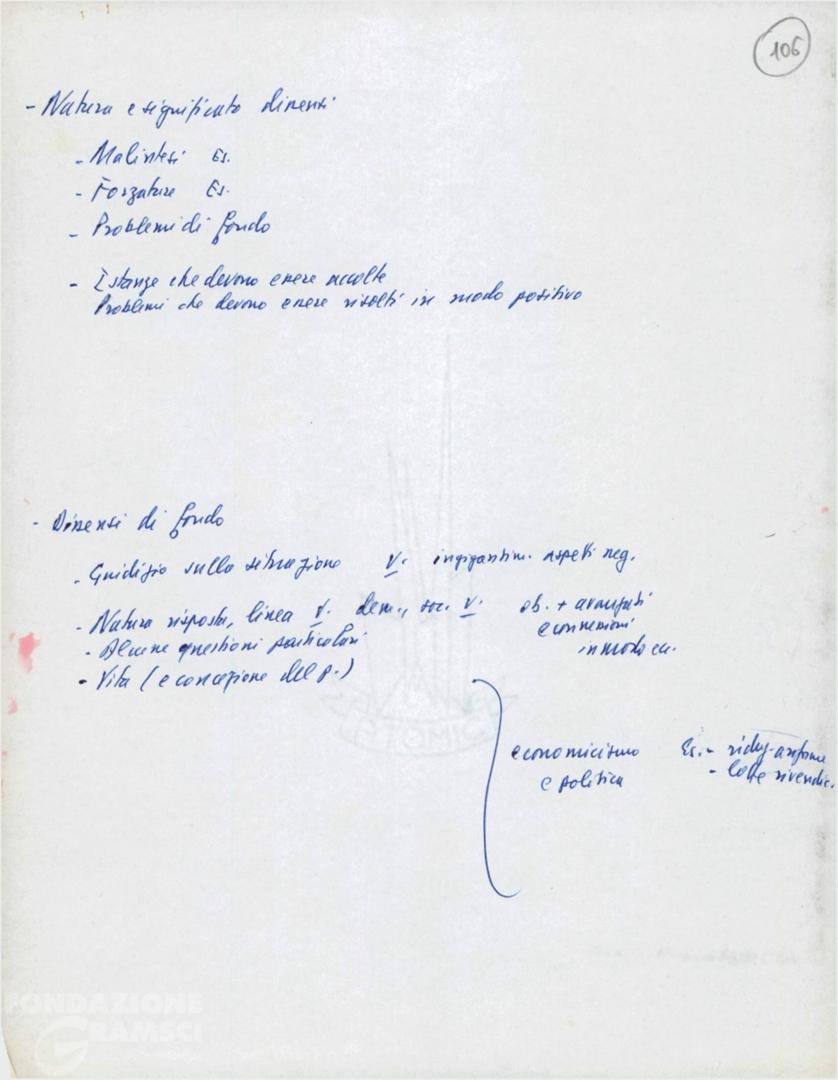 106
- Natura e significato dissensi
- Malintesi Es.
- Forzature Es.
- Problemi di fondo
- Istanze che devono essere accolte
Problemi che devono essere risolti in modo positivo
- Dissensi di fondo
- Giudizio sulla situazione V. ingigantim. aspetti neg.
- Natura risposta, linea V. dem., soc. V. ob. + avanzati
e connessioni
in modo
- Alcune questioni particolari
- Vita (e concezione del p.)
economicismo Es. -
e politica - lotte rivendic.
FONDAZIONE
GRAMSCI